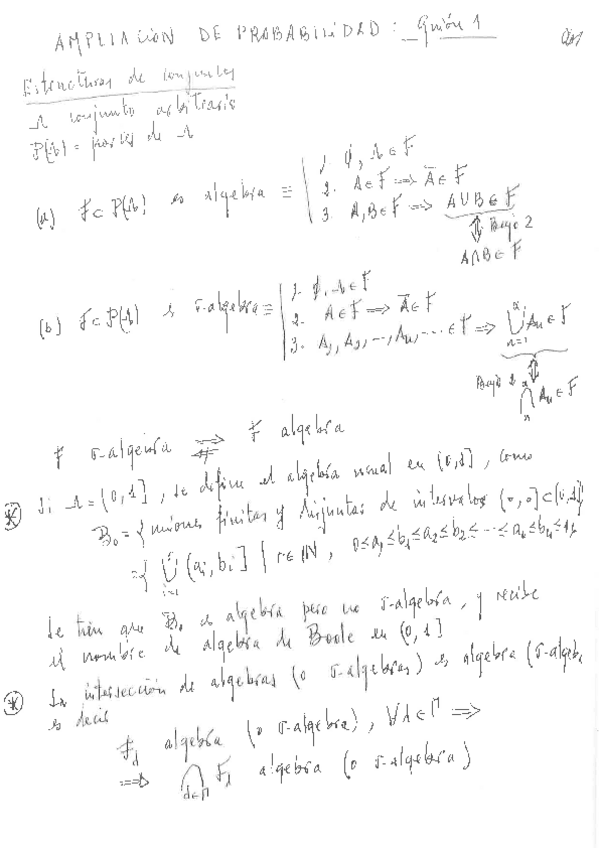 AMPLIACIÓN DE PROBABILIDAD: Guión 1
Estructuras de conjuntos
Ω conjunto arbitrario
P(Ω) = partes de Ω
(a) F ⊂ P(Ω) es algebra ≡
1. ∅, Ω ∈ F
2. A ∈ F ⟹ Ā ∈ F
3. A, B ∈ F ⟹ A ∪ B ∈ F
⇕ Bajo 2
A ∩ B ∈ F
(b) F ⊂ P(Ω) es σ-algebra ≡
1. ∅, Ω ∈ F
2. A ∈ F ⟹ Ā ∈ F
3. A₁, A₂, ..., Aₙ, ... ∈ F ⟹ ⋃_{n=1}^∞ Aₙ ∈ F
Bajo 2 ⇕
⋂ₙ Aₙ ∈ F
F σ-algebra ⟹ F algebra
⇍
* Si Ω = (0,1], se define el algebra usual en (0,1], como
B₀ = { uniones finitas y disjuntas de intervalos (·,·] ⊂ (0,1] }
= { ⋃_{i=1}^r (aᵢ, bᵢ] | r ∈ ℕ, 0 ≤ a₁ ≤ b₁ ≤ a₂ ≤ b₂ ≤ ··· ≤ aᵣ ≤ bᵣ ≤ 1 }
Se tien que B₀ es algebra pero no σ-algebra, y recibe
el nombre de algebra de Boole en (0,1]
* La intersección de algebras (o σ-algebras) es algebra (σ-algeb.
es decir
F_λ algebra (o σ-algebra), ∀λ ∈ Γ ⟹
⟹ ⋂_{λ∈Γ} F_λ algebra (o σ-algebra)